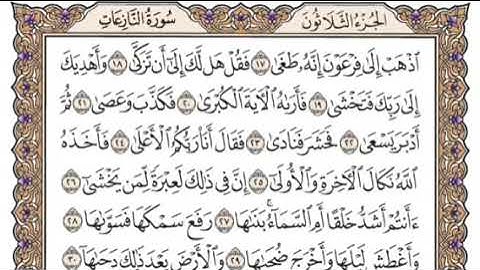 الجزء الثلاثون سورة النازعات
ٱذۡهَبۡ إِلَىٰ فِرۡعَوۡنَ إِنَّهُۥ طَغَىٰ ١٧ فَقُلۡ هَل لَّكَ إِلَىٰٓ أَن تَزَكَّىٰ ١٨ وَأَهۡدِيَكَ
إِلَىٰ رَبِّكَ فَتَخۡشَىٰ ١٩ فَأَرَىٰهُ ٱلۡأٓيَةَ ٱلۡكُبۡرَىٰ ٢٠ فَكَذَّبَ وَعَصَىٰ ٢١ ثُمَّ
أَدۡبَرَ يَسۡعَىٰ ٢٢ فَحَشَرَ فَنَادَىٰ ٢٣ فَقَالَ أَنَا۠ رَبُّكُمُ ٱلۡأَعۡلَىٰ ٢٤ فَأَخَذَهُ
ٱللَّهُ نَكَالَ ٱلۡأٓخِرَةِ وَٱلۡأُولَىٰٓ ٢٥ إِنَّ فِي ذَٰلِكَ لَعِبۡرَةٗ لِّمَن يَخۡشَىٰٓ ٢٦
ءَأَنتُمۡ أَشَدُّ خَلۡقًا أَمِ ٱلسَّمَآءُۚ بَنَىٰهَا ٢٧ رَفَعَ سَمۡكَهَا فَسَوَّىٰهَا ٢٨
وَأَغۡطَشَ لَيۡلَهَا وَأَخۡرَجَ ضُحَىٰهَا ٢٩ وَٱلۡأَرۡضَ بَعۡدَ ذَٰلِكَ دَحَىٰهَآ ٣٠